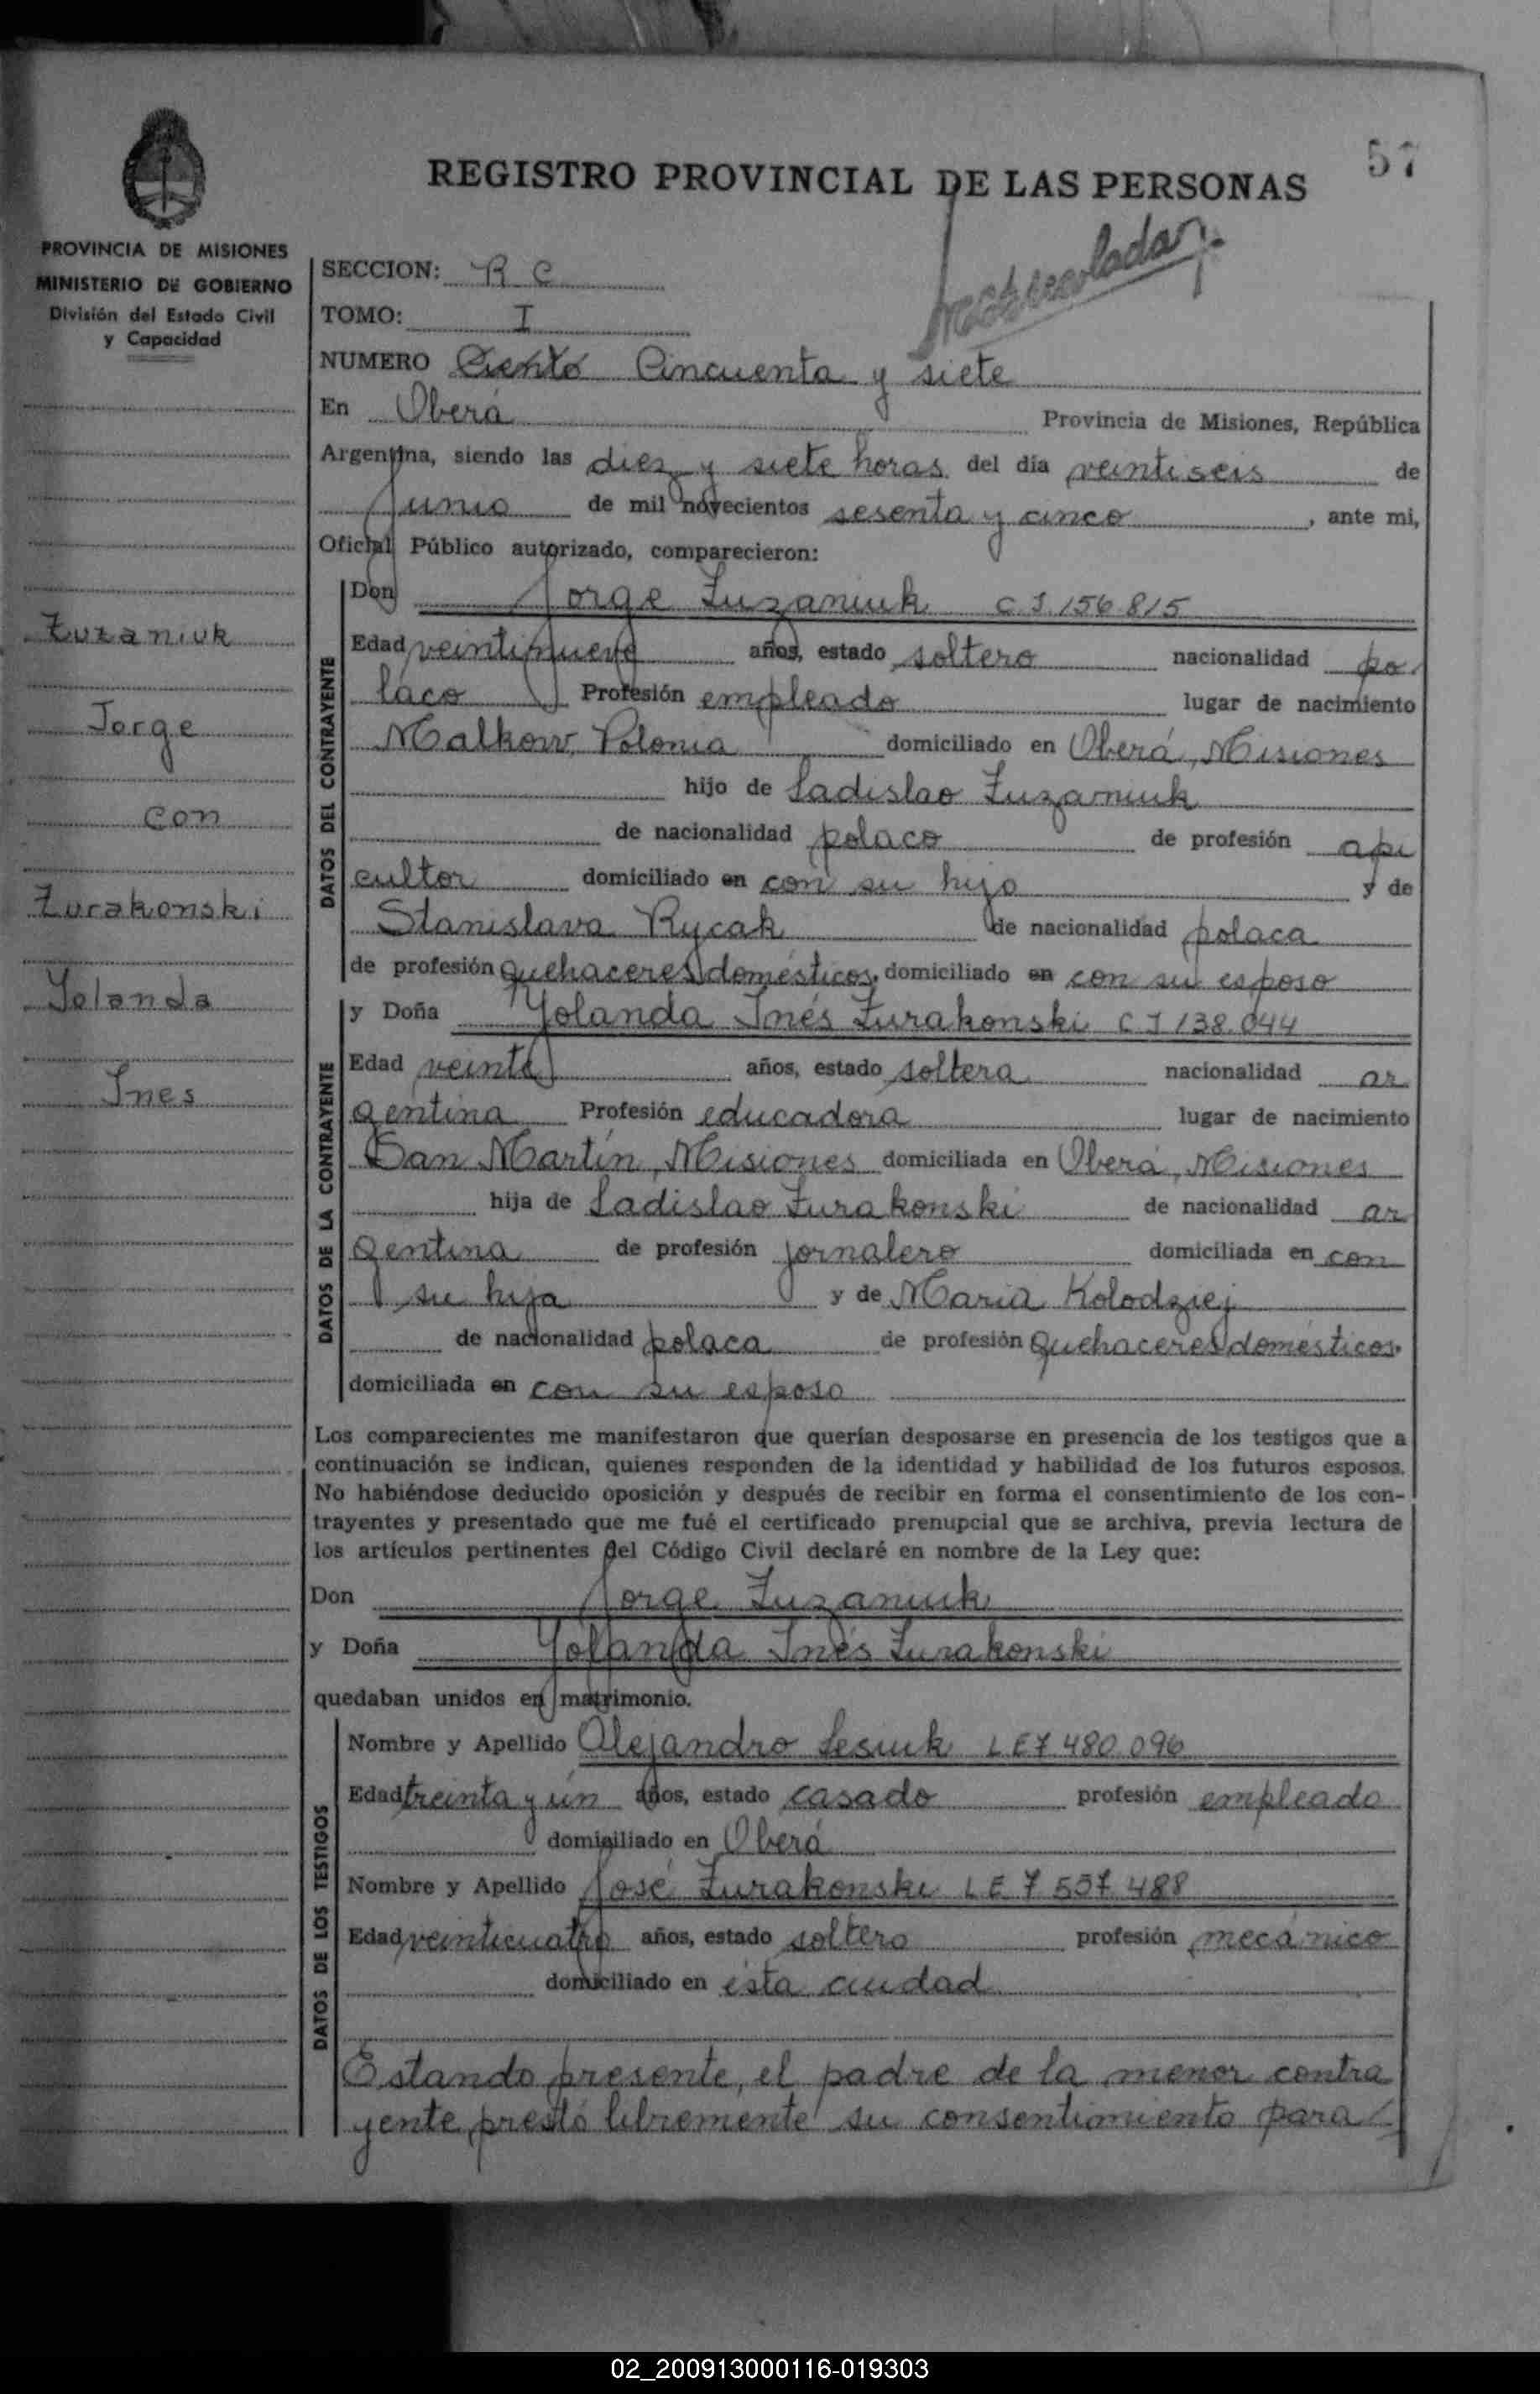 57
REGISTRO PROVINCIAL DE LAS PERSONAS
PROVINCIA DE MISIONES
MINISTERIO DE GOBIERNO
División del Estado Civil
y Capacidad
SECCION: R C
TOMO: I
NUMERO Ciento Cincuenta y siete
En Oberá Provincia de Misiones, República
Argentina, siendo las diez y siete horas del día veintiseis de
junio de mil novecientos sesenta y cinco, ante mi,
Oficial Público autorizado, comparecieron:
Zuzaniuk
Jorge
con
Zurakonski
Yolanda
Ines
DATOS DEL CONTRAYENTE
Don Jorge Zuzaniuk C.I. 156.815
Edad veintinueve años, estado soltero nacionalidad po
laco Profesión empleado lugar de nacimiento
Malkow, Polonia domiciliado en Oberá, Misiones
hijo de Ladislao Zuzaniuk
de nacionalidad polaco de profesión api
cultor domiciliado en con su hijo y de
Stanislava Rycak de nacionalidad polaca
de profesión quehaceres domésticos, domiciliado en con su esposo
DATOS DE LA CONTRAYENTE
y Doña Yolanda Inés Zurakonski C I 138.044
Edad veinte años, estado soltera nacionalidad ar
gentina Profesión educadora lugar de nacimiento
San Martín, Misiones domiciliada en Oberá, Misiones
hija de Ladislao Zurakonski de nacionalidad ar
gentina de profesión jornalero domiciliada en con
su hija y de Maria Kolodziej
de nacionalidad polaca de profesión quehaceres domésticos.
domiciliada en con su esposo
Los comparecientes me manifestaron que querían desposarse en presencia de los testigos que a
continuación se indican, quienes responden de la identidad y habilidad de los futuros esposos.
No habiéndose deducido oposición y después de recibir en forma el consentimiento de los con-
trayentes y presentado que me fué el certificado prenupcial que se archiva, previa lectura de
los artículos pertinentes del Código Civil declaré en nombre de la Ley que:
Don Jorge Zuzaniuk
y Doña Yolanda Inés Zurakonski
quedaban unidos en matrimonio.
DATOS DE LOS TESTIGOS
Nombre y Apellido Alejandro Lesiuk L E 7 480.096
Edad treinta y un años, estado casado profesión empleado
domiciliado en Oberá
Nombre y Apellido José Zurakonski L E 7 557 488
Edad veinticuatro años, estado soltero profesión mecánico
domiciliado en ésta ciudad
Estando presente, el padre de la menor contra
yente, prestó libremente su consentimiento para
02_200913000116-019303